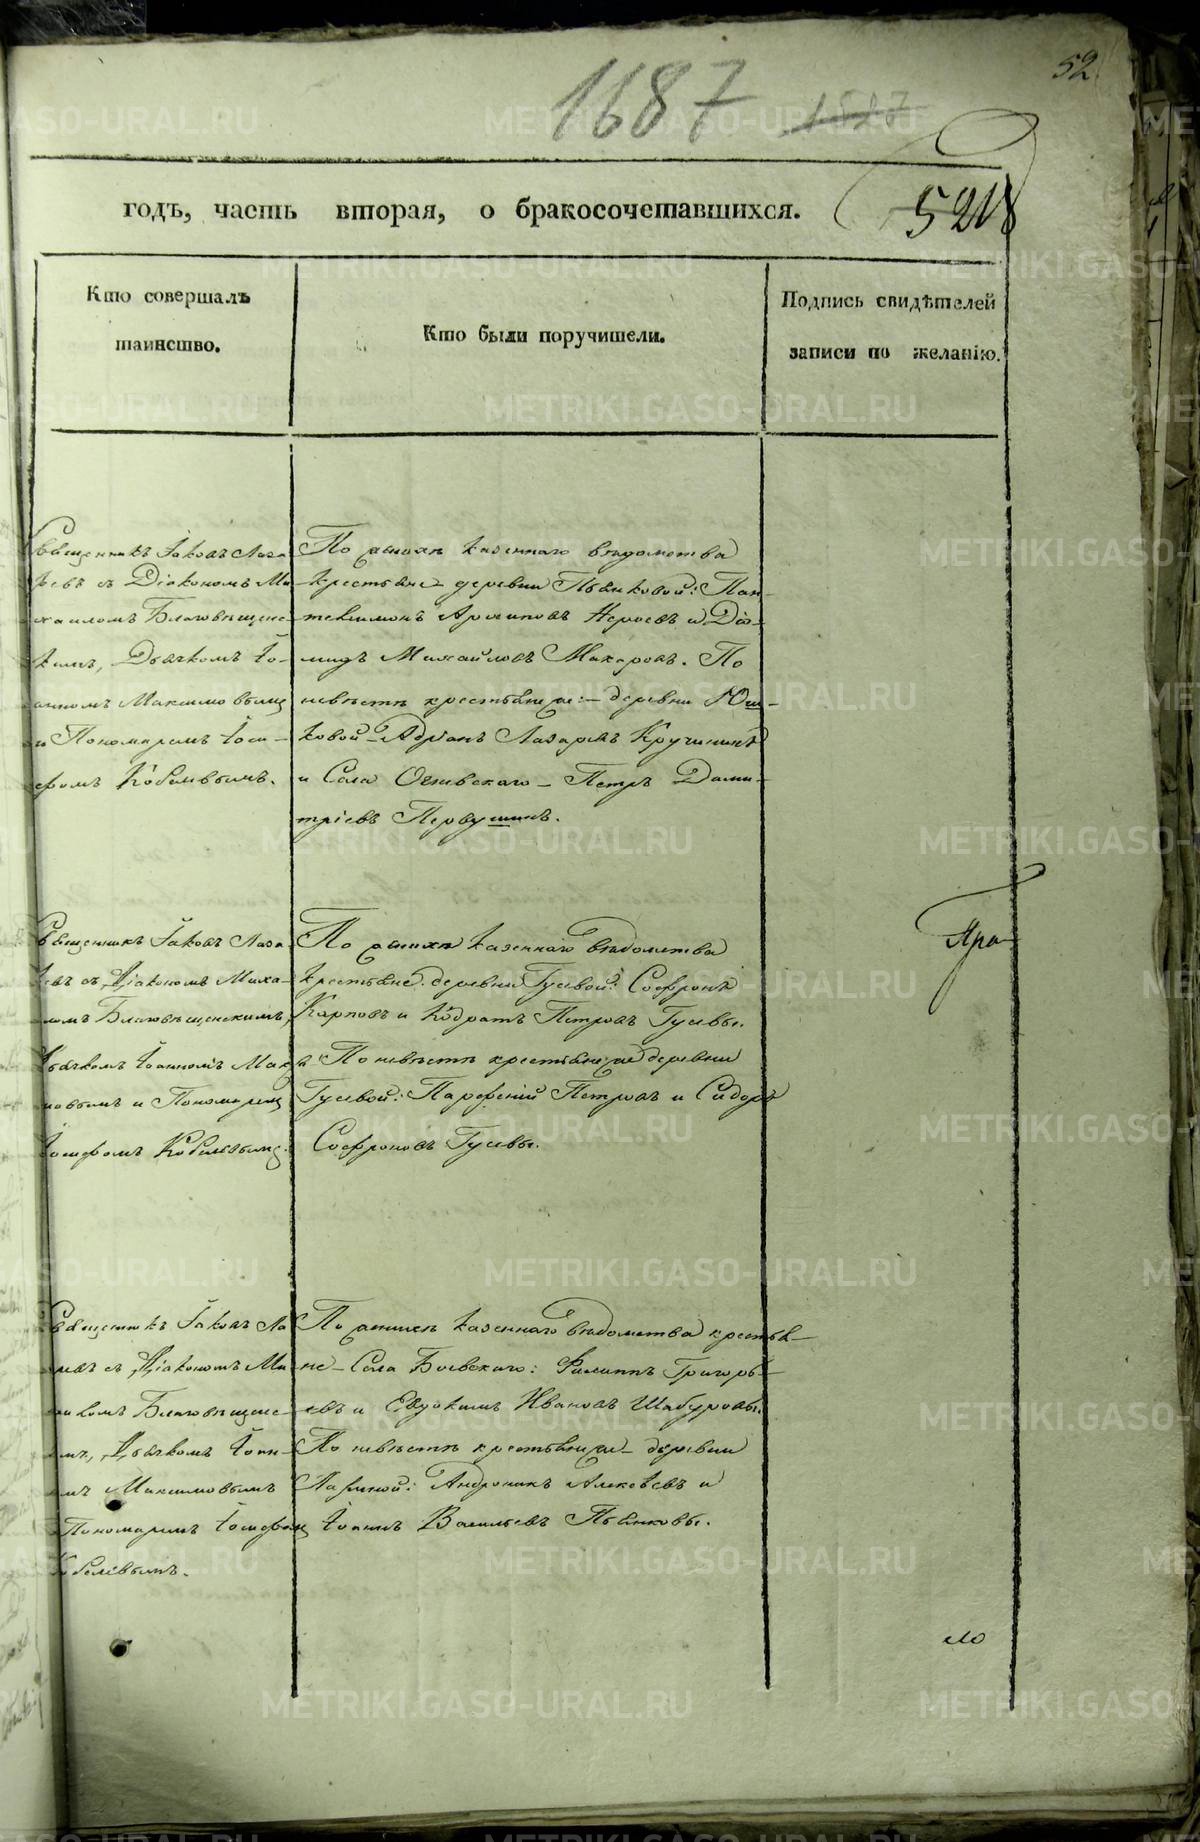 52
1687 1517
годъ, часть вторая, о бракосочетавшихся.
5218
Кто совершалъ
таинство.
Кто были поручители.
Подпись свидѣтелей
записи по желанію.
Священникъ Іаковъ Лаза
ревъ съ Діакономъ Ми
хаиломъ Благовѣщенс
кимъ, Дьячкомъ Іо-
анномъ Максимовымъ
и Пономаремъ Іоси-
фомъ Кобелевымъ.
По женихѣ казеннаго вѣдомства
крестьяне деревни Пьянковой: Пан-
телеимонъ Архиповъ Нероевъ и Діо-
мидъ Михайловъ Макаровъ. По
невѣстѣ крестьянеже: деревни Юш-
ковой Адріанъ Лазаревъ Кручининъ
и Села Огневскаго Петръ Дими-
тріевъ Первушинъ.
Священникъ Іаковъ Лаза
ревъ съ Діакономъ Миха-
иломъ Благовѣщенскимъ,
Дьячкомъ Іоанномъ Макси
мовымъ и Пономаремъ
Іосифомъ Кобелевымъ.
По женихѣ казеннаго вѣдомства
крестьяне деревни Гусевой: Софронъ
Карповъ и Кодратъ Петровъ Гусевы.
По невѣстѣ крестьянеже деревни
Гусевой: Парфеній Петровъ и Сидоръ
Софроновъ Гусевы.
Яра
Священникъ Іаковъ Ла
заревъ съ Діакономъ Ми
хаиломъ Благовѣщенс-
кимъ, Дьячкомъ Іоан-
номъ Максимовымъ
и Пономаремъ Іосифомъ
Кобелевымъ.
По женихѣ казеннаго вѣдомства крестья-
не Села Боевскаго: Филиппъ Григорь-
евъ и Евдокимъ Ивановъ Шабуровы.
По невѣстѣ крестьянеже деревни
Лариной: Андроникъ Алексѣевъ и
Іоаннъ Васильевъ Пьянковы.
ло
METRIKI.GASO-URAL.RU